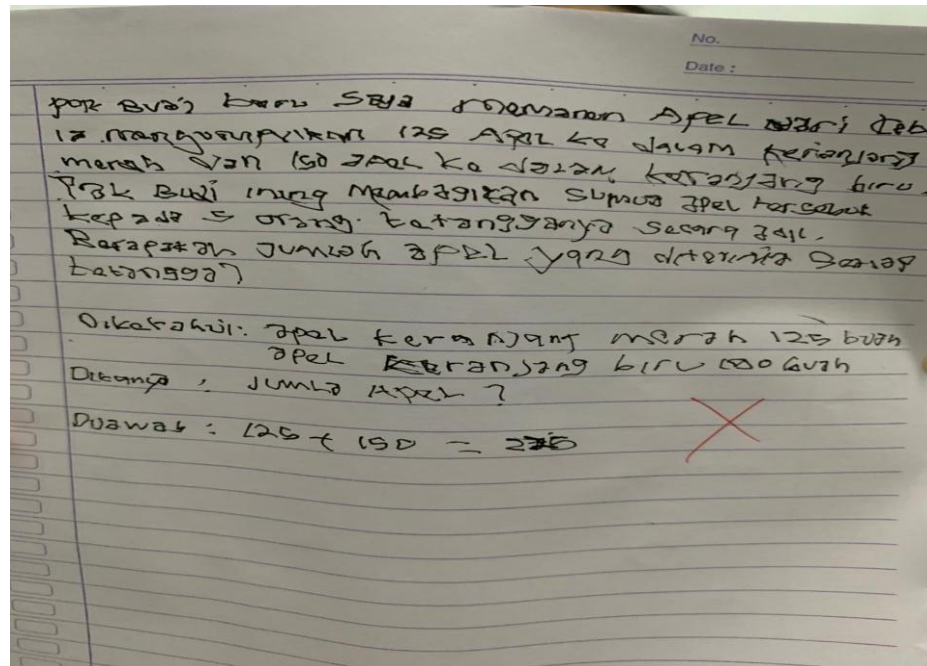 No.
Date :
pak Budi baru Saja memanen Apel dari keb
ia mengumpulkan 125 Apel ke dalam keranjang
merah dan 150 apel ke dalam keranjang biru.
Pak Budi ingin Membagikan semua apel tersebut
kepada 5 orang tetangganya secara adil.
Berapakah jumlah apel yang diterima setiap
tetangga?
Diketahui: apel keranjang merah 125 buah
apel keranjang biru 150 buah
Ditanya : Jumla Apel ?
Dijawab : 125 + 150 = 275